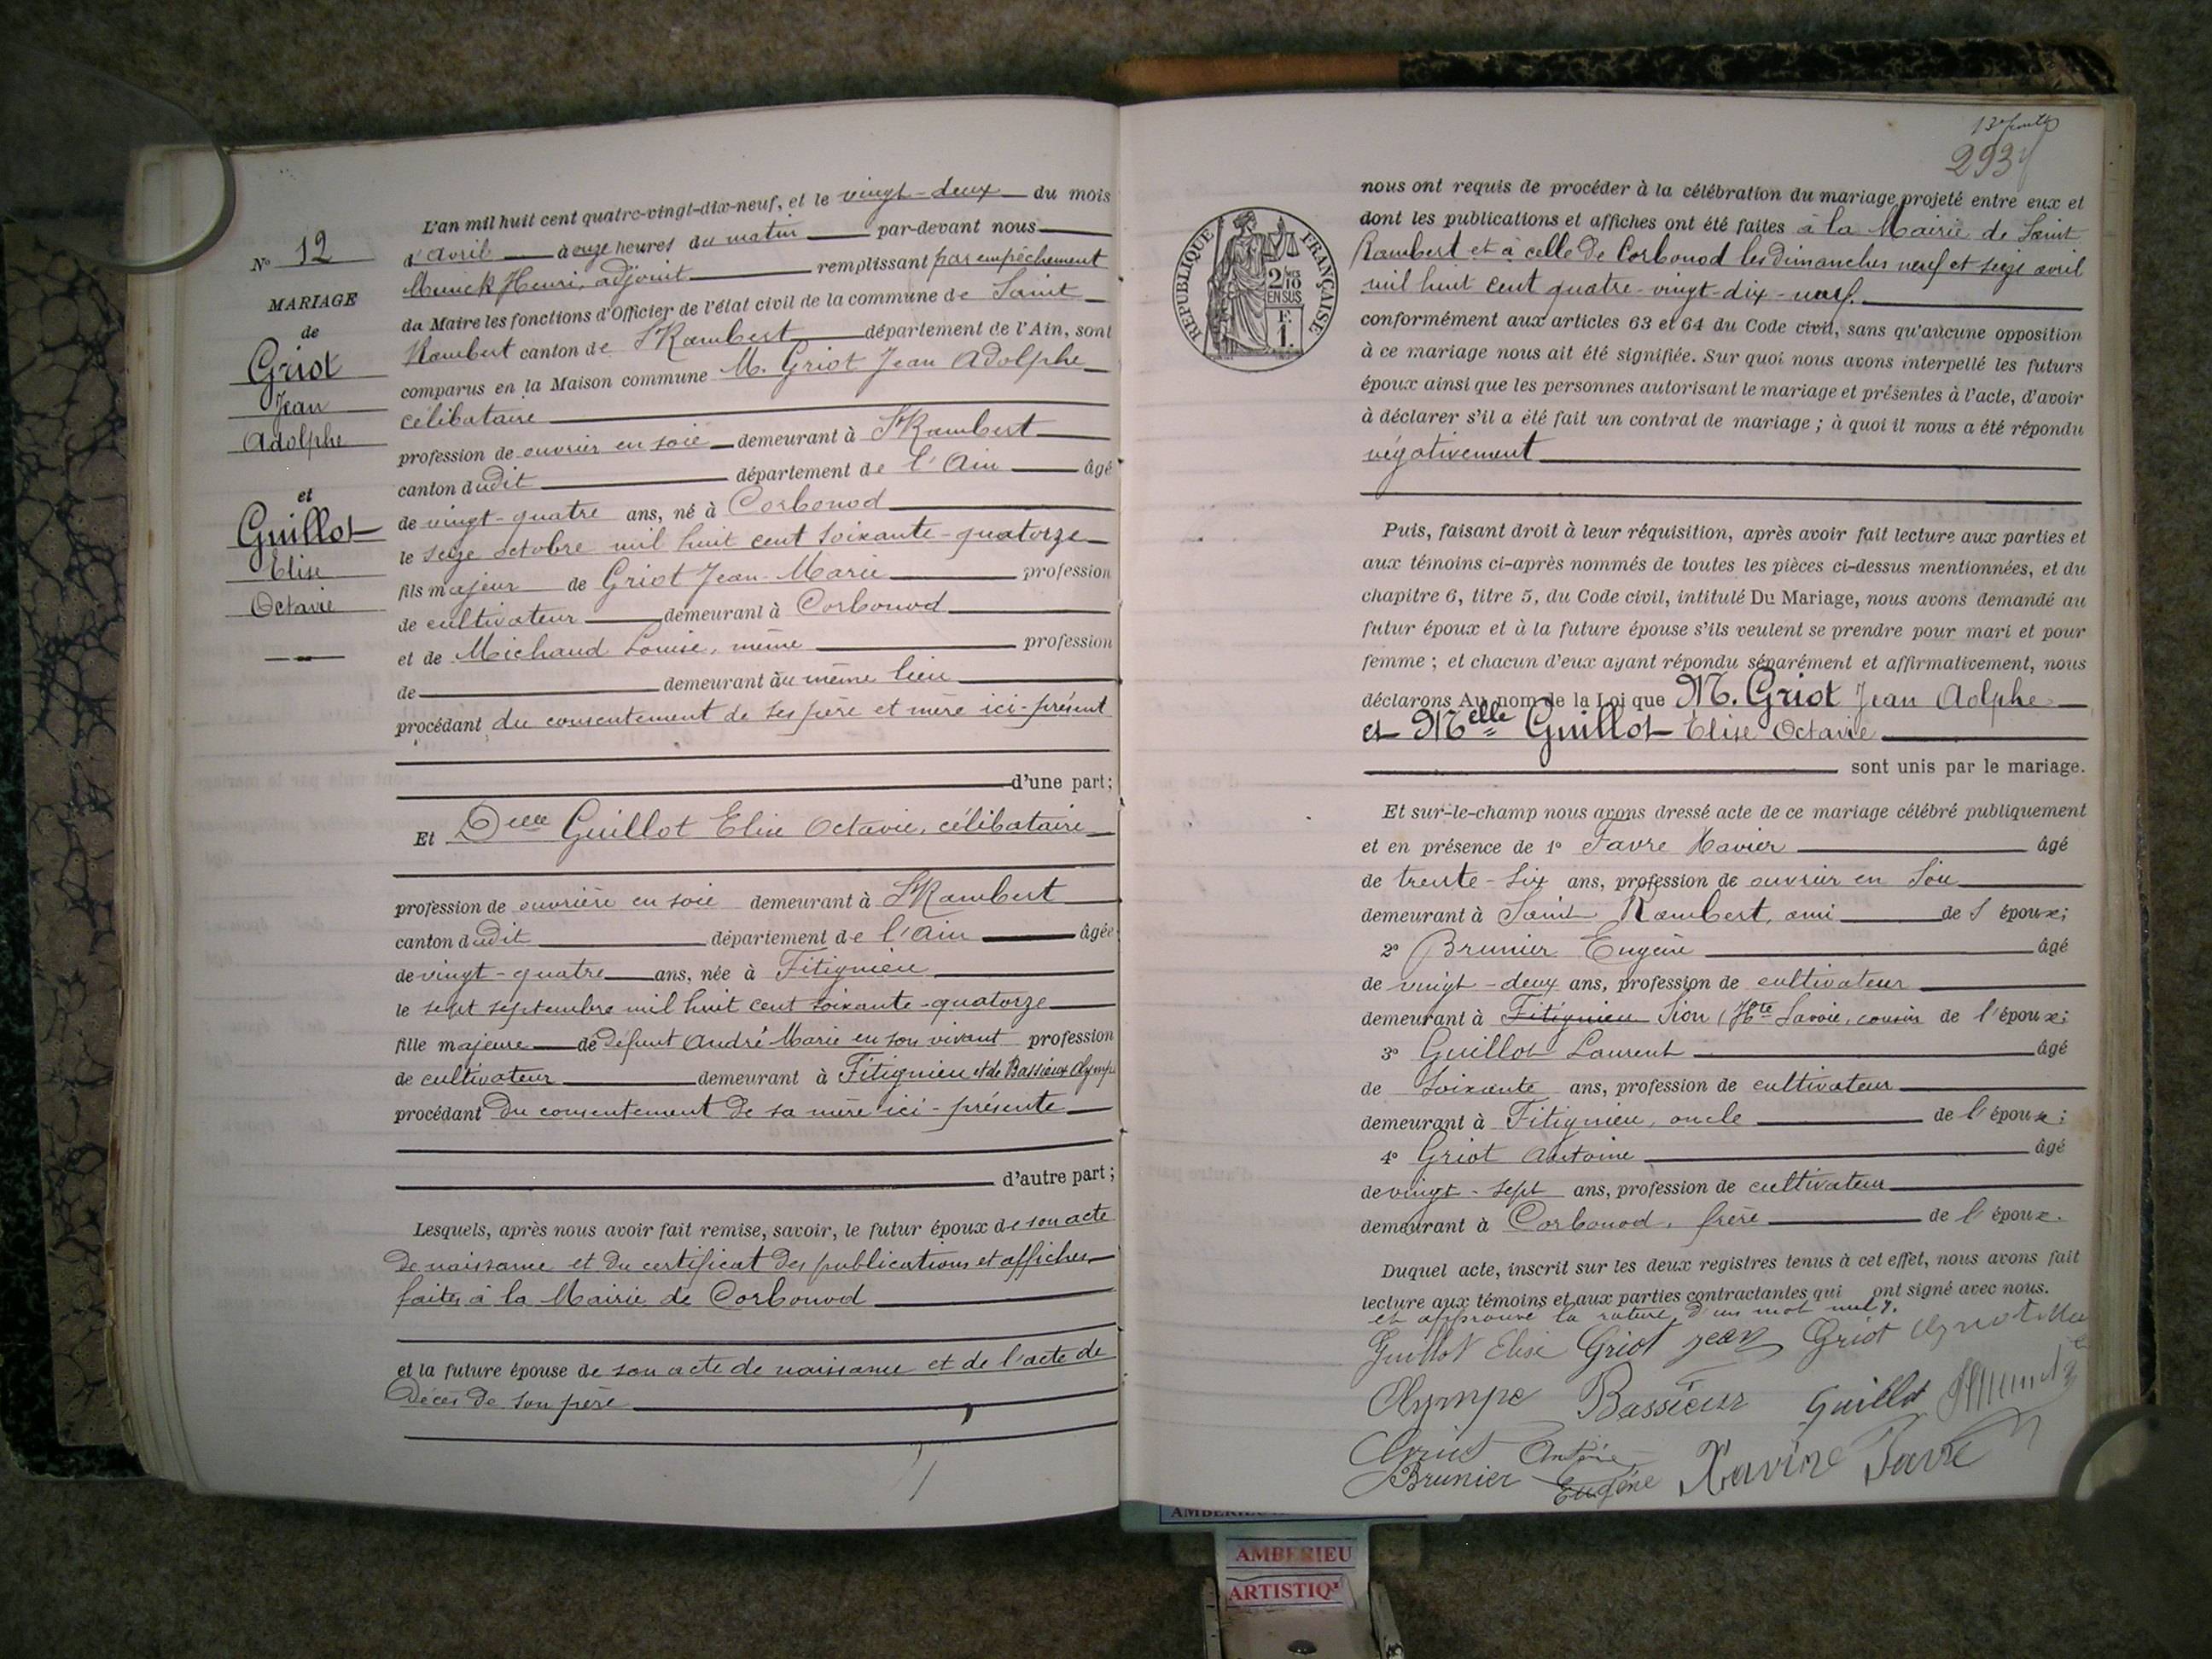 N° 12
MARIAGE
de
Griot
Jean
Adolphe
et
Guillot
Elise
Octavie
L'an mil huit cent quatre-vingt-dix-neuf, et le vingt-deux du mois
d'avril à onze heures du matin par-devant nous
Henri, adjoint remplissant par empêchement
du Maire les fonctions d'Officier de l'état civil de la commune de Saint
Rambert canton de St Rambert département de l'Ain, sont
comparus en la Maison commune M. Griot Jean Adolphe
célibataire
profession de ouvrier en soie demeurant à St Rambert
canton dudit département de l'Ain âgé
de vingt-quatre ans, né à Corbonod
le seize octobre mil huit cent soixante-quatorze
fils majeur de Griot Jean-Marie profession
de cultivateur demeurant à Corbonod
et de Michaud Louise, même profession
de demeurant au même lieu
procédant du consentement de ses père et mère ici-présent
d'une part;
Et Delle Guillot Elise Octavie, célibataire
profession de ouvrière en soie demeurant à St Rambert
canton dudit département de l'Ain âgée
de vingt-quatre ans, née à Fitignieu
le sept septembre mil huit cent soixante-quatorze
fille majeure de défunt André Marie en son vivant profession
de cultivateur demeurant à Fitignieu et de Bassieux Olympe
procédant du consentement de sa mère ici-présente
d'autre part;
Lesquels, après nous avoir fait remise, savoir, le futur époux de son acte
de naissance et du certificat des publications et affiches
faites à la Mairie de Corbonod
et la future épouse de son acte de naissance et de l'acte de
décès de son père
293
RÉPUBLIQUE FRANÇAISE
2/10 EN SUS
F.
1.
nous ont requis de procéder à la célébration du mariage projeté entre eux et
dont les publications et affiches ont été faites à la Mairie de Saint
Rambert et à celle de Corbonod les dimanches neuf et seize avril
mil huit cent quatre-vingt-dix-neuf.
conformément aux articles 63 et 64 du Code civil, sans qu'aucune opposition
à ce mariage nous ait été signifiée. Sur quoi nous avons interpellé les futurs
époux ainsi que les personnes autorisant le mariage et présentes à l'acte, d'avoir
à déclarer s'il a été fait un contrat de mariage; à quoi il nous a été répondu
négativement
Puis, faisant droit à leur réquisition, après avoir fait lecture aux parties et
aux témoins ci-après nommés de toutes les pièces ci-dessus mentionnées, et du
chapitre 6, titre 5, du Code civil, intitulé Du Mariage, nous avons demandé au
futur époux et à la future épouse s'ils veulent se prendre pour mari et pour
femme; et chacun d'eux ayant répondu séparément et affirmativement, nous
déclarons Au nom de la Loi que M. Griot Jean Adolphe
et Melle Guillot Elise Octavie
sont unis par le mariage.
Et sur-le-champ nous avons dressé acte de ce mariage célébré publiquement
et en présence de 1° Favre Xavier âgé
de trente-six ans, profession de ouvrier en soie
demeurant à Saint Rambert, ami de l'époux;
2° Brunier Eugène âgé
de vingt-deux ans, profession de cultivateur
demeurant à Fitignieu Sion (Hte Savoie, cousin de l'époux;
3° Guillot Laurent âgé
de soixante ans, profession de cultivateur
demeurant à Fitignieu, oncle de l'époux;
4° Griot Antoine âgé
de vingt-sept ans, profession de cultivateur
demeurant à Corbonod, frère de l'époux.
Duquel acte, inscrit sur les deux registres tenus à cet effet, nous avons fait
lecture aux témoins et aux parties contractantes qui ont signé avec nous.
et approuvé la rature d'un mot nul.
Guillot Elise Griot Jean Griot
Olympe Bassieux Guillot
Griot Antoine
Brunier Eugène Xavier Favre
AMBERIEU
ARTISTIQ